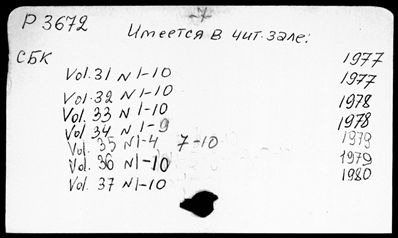 Р 3672
Имеется в чит. зале:
СБК 1977
Vol. 31 N 1-10 1977
Vol. 32 N 1-10 1978
Vol. 33 N 1-10 1978
Vol. 34 N 1-9 1979
Vol. 35 N 1-4 7-10 1979
Vol. 36 N 1-10 1980
Vol. 37 N 1-10